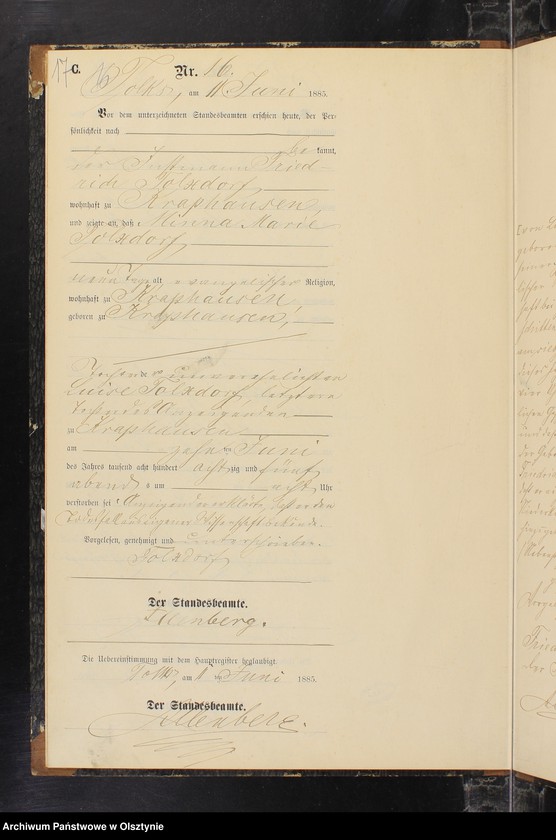 17 C. Nr. 16.
Tolks, am 11 Juni 1885.
Vor dem unterzeichneten Standesbeamten erschien heute, der Per-
sönlichkeit nach
be kannt,
der Instmann Fried-
rich Tolxdorf
wohnhaft zu Kraphausen,
und zeigte an, daß Minna Marie
Tolxdorf
neun Tage alt evangelischer Religion,
wohnhaft zu Kraphausen
geboren zu Kraphausen,
Tochter der unverehelichten
Luise Tolxdorf, letztere
Tochter des Anzeigenden
zu Kraphausen
am zehn ten Juni
des Jahres tausend acht hundert acht zig und fünf
abends um acht Uhr
verstorben sei. Anzeigender erklärt, daß er den
Todesfall aus eigener Wissenschaft bekunde.
Vorgelesen, genehmigt und unterschrieben.
Tolxdorf
Der Standesbeamte.
Ellenberg.
Die Uebereinstimmung mit dem Hauptregister beglaubigt.
Tolks, am 11 ten Juni 1885.
Der Standesbeamte.
Ellenberg.
Archiwum Państwowe w Olsztynie